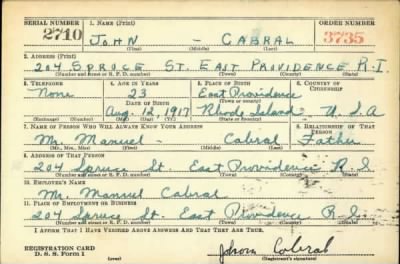 SERIAL NUMBER 1. NAME (Print) ORDER NUMBER
2710 JOHN - CABRAL 3735
(First) (Middle) (Last)
2. ADDRESS (Print)
204 SPRUCE ST. EAST PROVIDENCE R.I.
(Number and street or R. F. D. number) (Town) (County) (State)
3. TELEPHONE 4. AGE IN YEARS 5. PLACE OF BIRTH 6. COUNTRY OF CITIZENSHIP
None 23 East Providence
DATE OF BIRTH (Town or county)
Aug. 12, 1917 Rhode Island U.S.A
(Exchange) (Number) (Mo.) (Day) (Yr.) (State or country)
7. NAME OF PERSON WHO WILL ALWAYS KNOW YOUR ADDRESS RELATIONSHIP OF THAT PERSON
Mr. Manuel - Cabral Father
(Mr., Mrs., Miss) (First) (Middle) (Last)
8. ADDRESS OF THAT PERSON
204 Spruce St. East Providence R.I.
(Number and street or R. F. D. number) (Town) (County) (State)
10. EMPLOYER'S NAME
Mr. Manuel Cabral
11. PLACE OF EMPLOYMENT OR BUSINESS
204 Spruce St. East Providence R.I.
(Number and street or R. F. D. number) (Town) (County) (State)
I AFFIRM THAT I HAVE VERIFIED ABOVE ANSWERS AND THAT THEY ARE TRUE.
REGISTRATION CARD
D. S. S. Form 1 John Cabral
(over) (Registrant's signature)